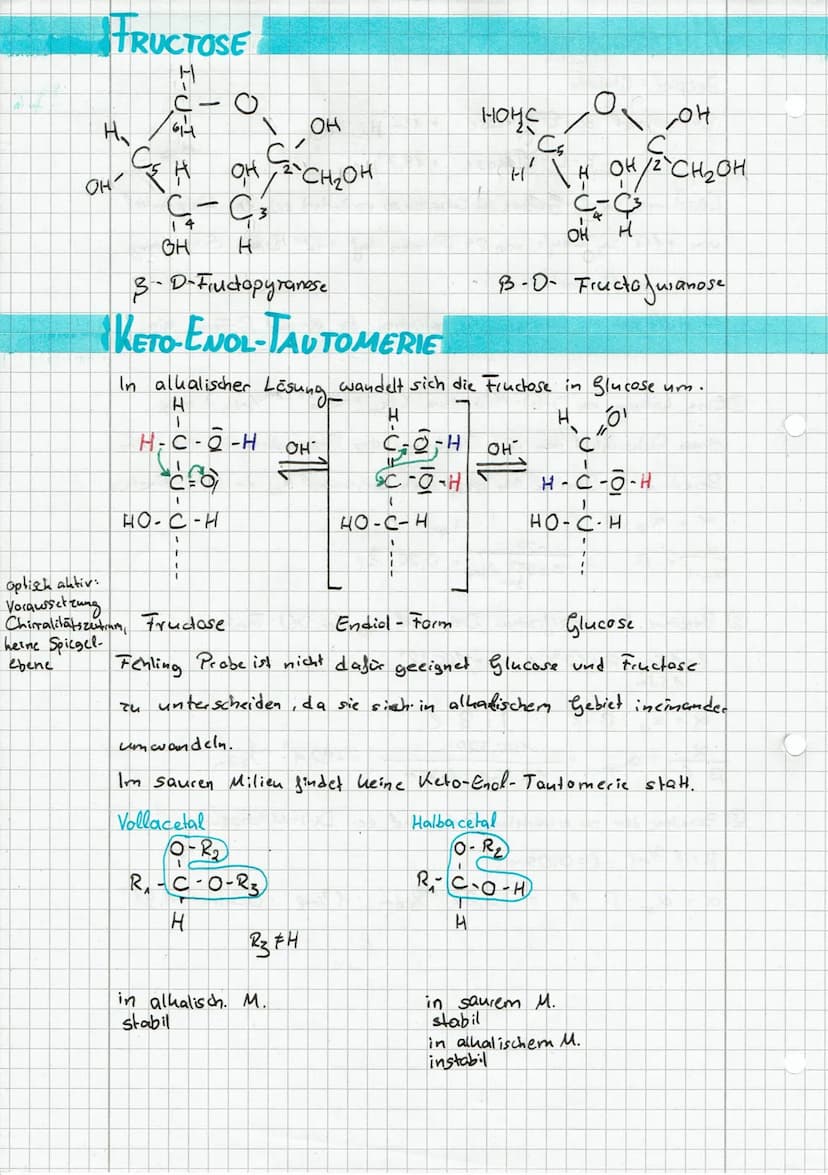 FRUCTOSE
H
C - O
6 H
H OH
C5 H OH C2 CH₂OH
OH
C - C3
4
OH H
β-D-Fructopyranose
O
HOH₂C OH
C5 C
H' H OH 2 CH₂OH
C-C3
4
OH H
β-D- Fructofuranose
KETO-ENOL-TAUTOMERIE
In alkalischer Lösung wandelt sich die Fructose in Glucose um.
H
H-C-O-H
C=O
HO-C-H
OH⁻
H
C-O-H
C-O-H
HO-C-H
OH⁻
H O
C
H-C-O-H
HO-C-H
optisch aktiv:
Voraussetzung
Chiralitätszentrum,
keine Spiegel-
ebene
Fructose Endiol-Form Glucose
Fehling Probe ist nicht dafür geeignet Glucose und Fructose
zu unterscheiden, da sie sich in alkalischem Gebiet ineinander
umwandeln.
Im sauren Milieu findet keine Keto-Enol-Tautomerie statt.
Vollacetal
O-R₂
R₁-C-O-R₃
H
R₃≠H
in alkalisch. M.
stabil
Halbacetal
O-R₂
R₁-C-O-H
H
in saurem M.
stabil
in alkalischem M.
instabil